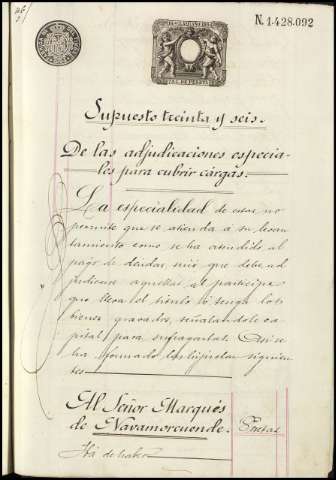 N. 1.428.092
Supuesto treinta y seis.
De las adjudicaciones especia-
les para cubrir cárgas.
La especialidad de estas no
permite que se atienda a su levan-
tamiento como se ha atendido al
pago de deudas, sinó que deben ad
judicarse aquellas al partícipe
que lleva el título ó tenga los
bienes gravados, señalandole ca-
pital para sufragarlas. Asi se
ha formado las hijuelas siguien-
tes
Al Señor Marqués
de Navamorcuende.
Pesetas
Há de haber